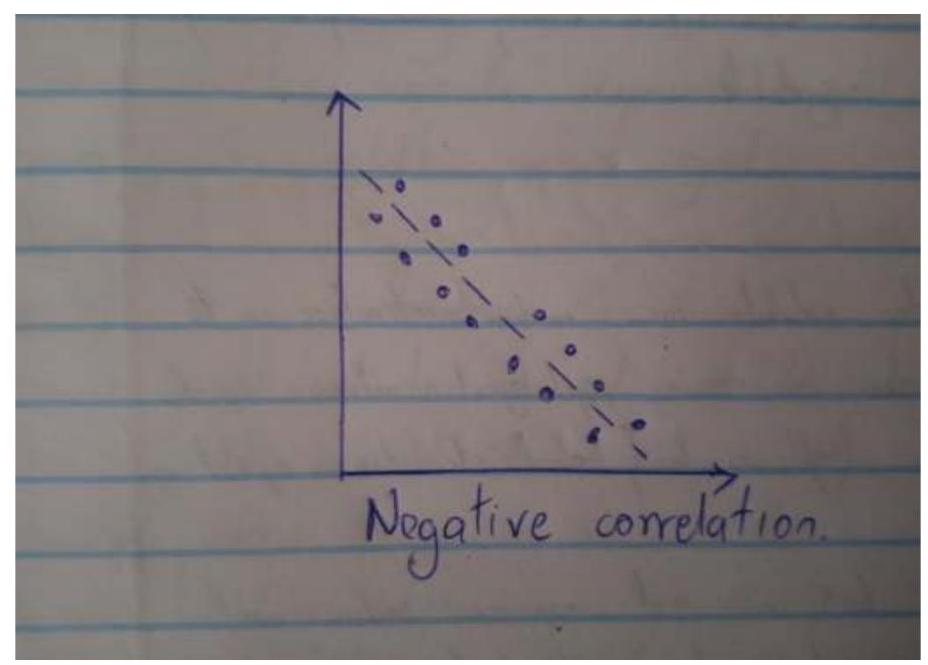 Negative correlation.